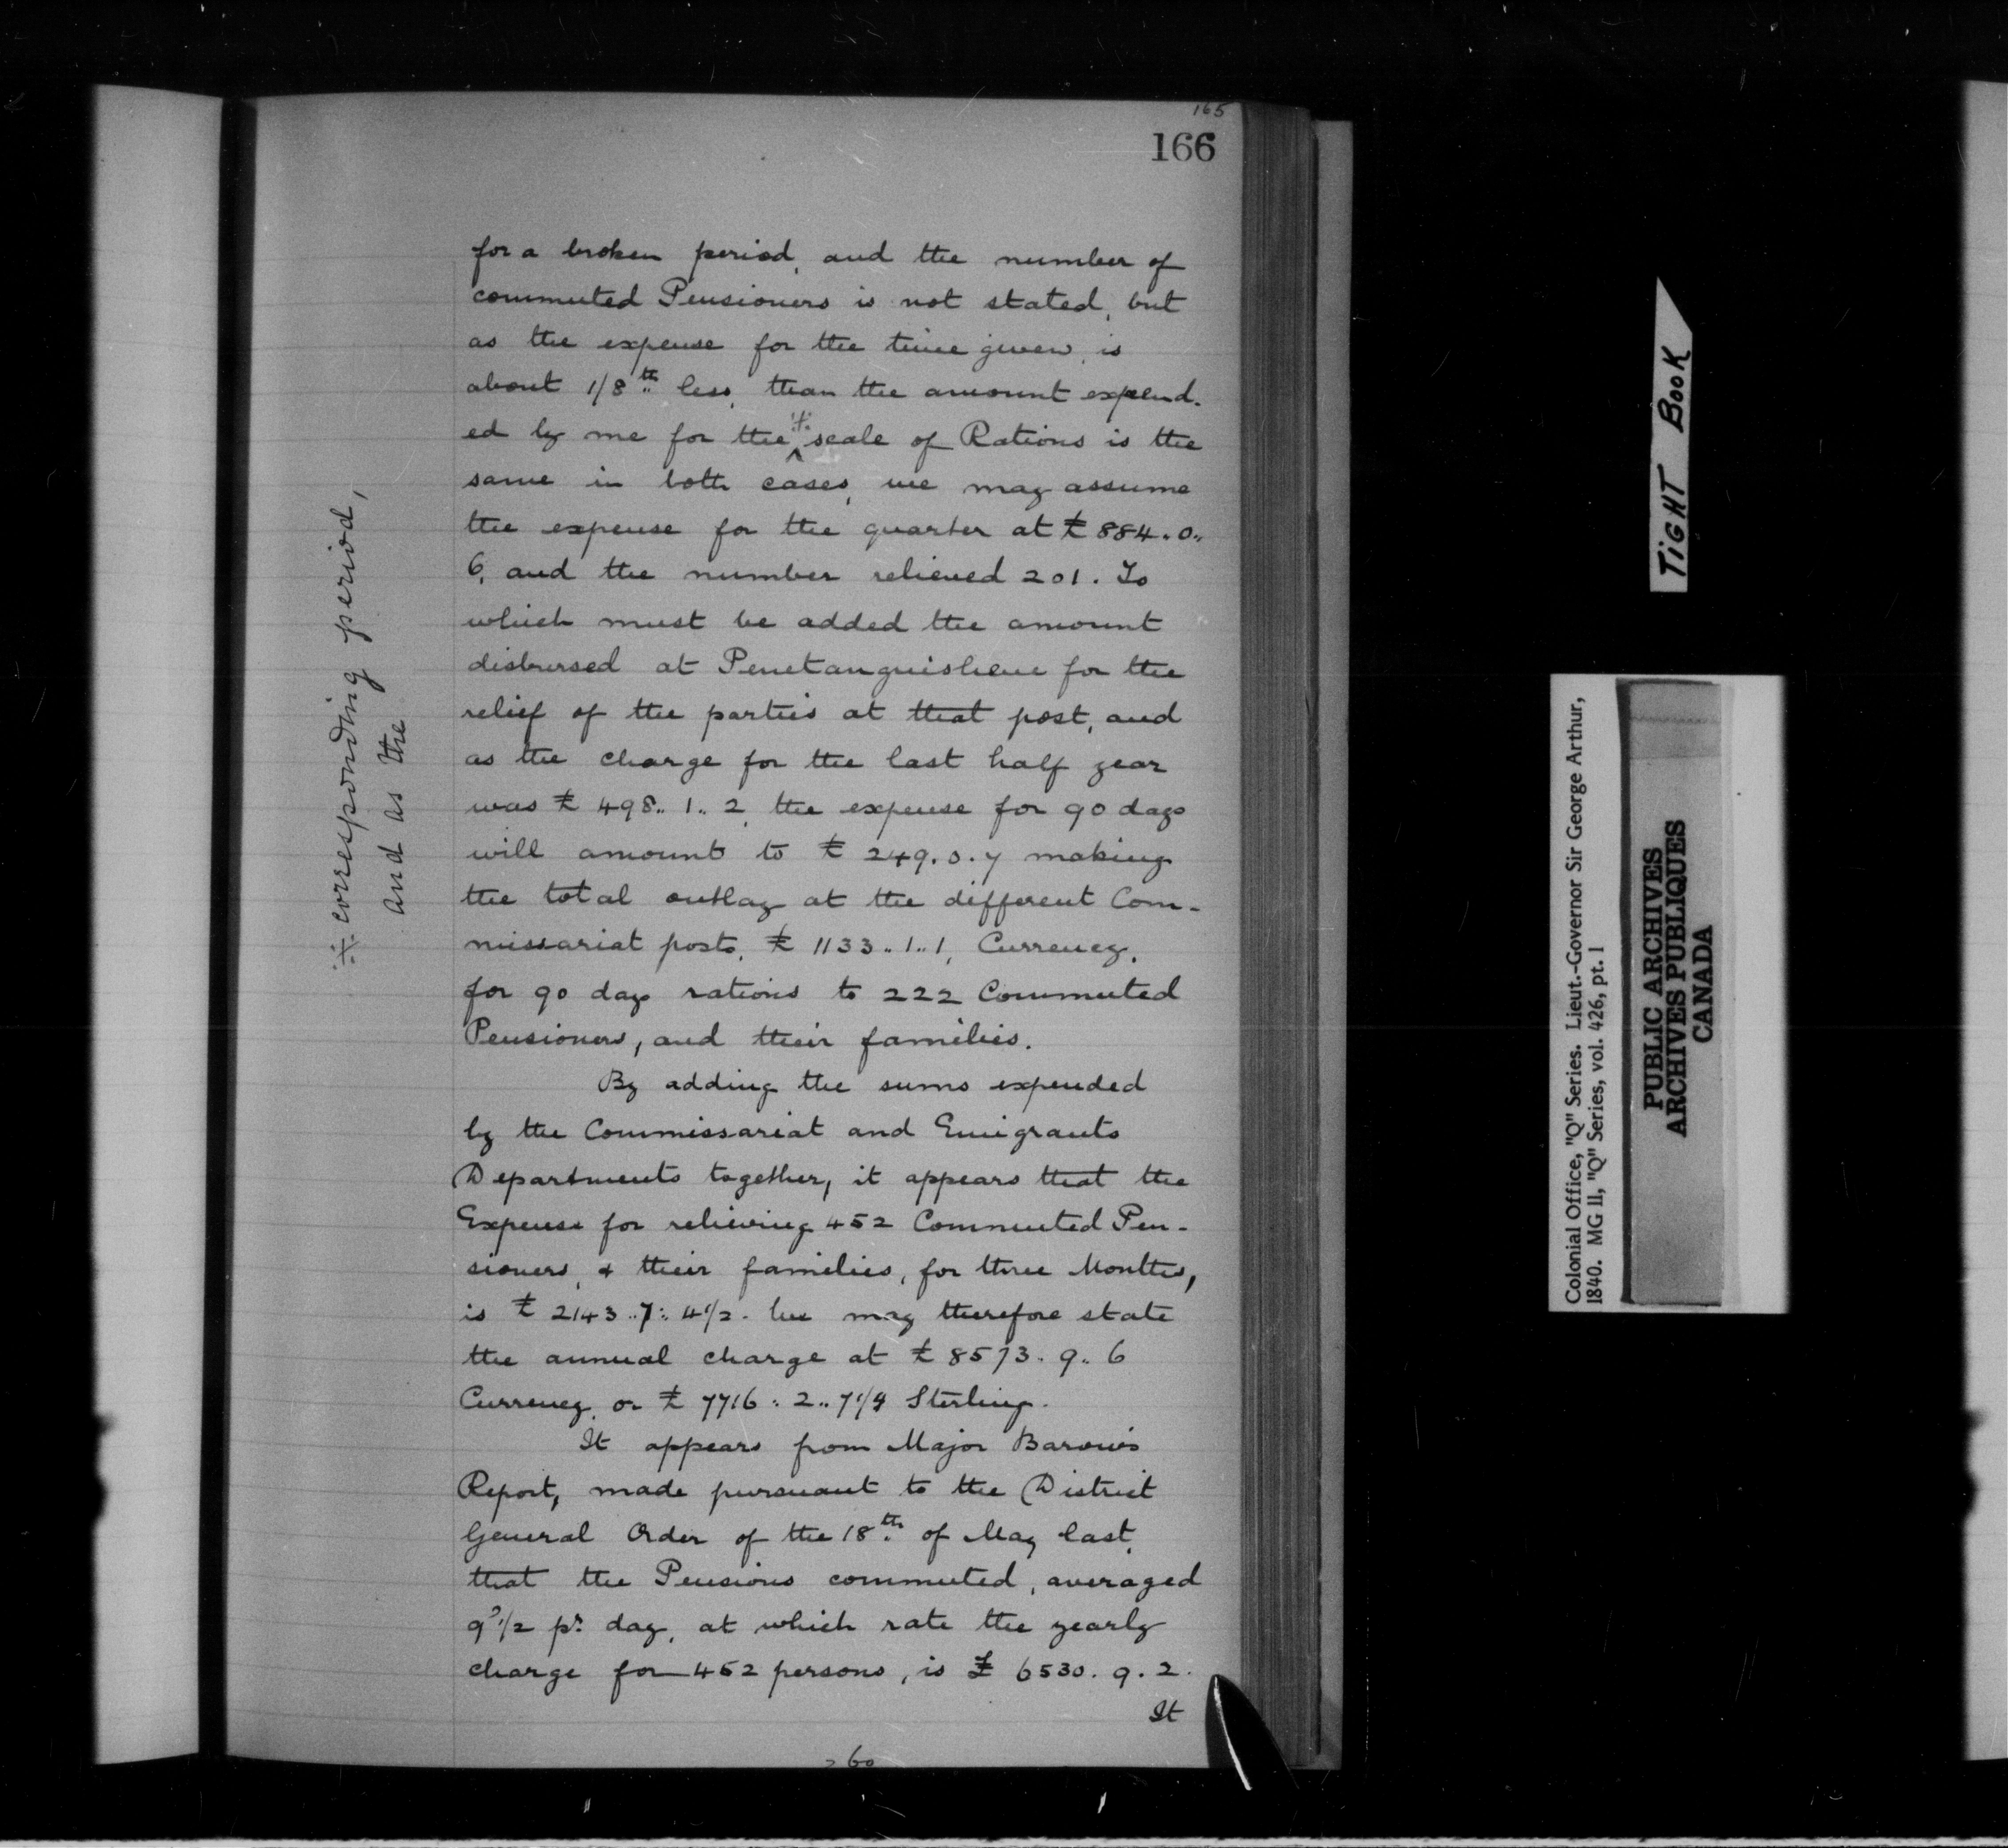 165
166
for a broken period, and the number of
commuted Pensioners is not stated, but
as the expense for the time given, is
about 1/8th less, than the amount expend-
ed by me for the ※ scale of Rations is the
same in both cases, we may assume
the expense for the quarter at £884.0.
6, and the number relieved 201. To
which must be added the amount
disbursed at Penetanguishene for the
relief of the parties at that post, and
as the charge for the last half year
was £498..1..2, the expense for 90 days
will amount to £249.0.7 making
the total outlay at the different Com-
missariat posts, £1133..1..1, Currency,
for 90 days rations to 222 Commuted
Pensioners, and their families.
By adding the sums expended
by the Commissariat and Emigrants
Departments together, it appears that the
Expense for relieving 452 Commuted Pen-
sioners, & their families, for three Months,
is £2143..7..4 1/2. We may therefore state
the annual charge at £8573.9..6
Currency, or £7716.2..7 1/4 Sterling.
It appears from Major Barow's
Report, made pursuant to the District
General Order of the 18th of May last,
that the Pensions commuted, averaged
9d 1/2 pr. day, at which rate the yearly
charge for 452 persons, is £6530.9.2.
It
260
※ corresponding period,
and as the
TIGHT BOOK
Colonial Office, "Q" Series. Lieut.-Governor Sir George Arthur,
1840. MG 11, "Q" Series, vol. 426, pt. 1
PUBLIC ARCHIVES
ARCHIVES PUBLIQUES
CANADA